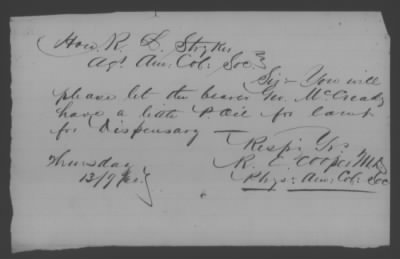 Hon. R. L. Stryker
Agt. Am: Col: Soc
Sir - You will
please let the bearer Geo. McCready
have a little P. Oil for lamp
for Dispensary —
Thursday
Respy Yrs
R. E. Cooper MD
Phys: Am: Col: Soc